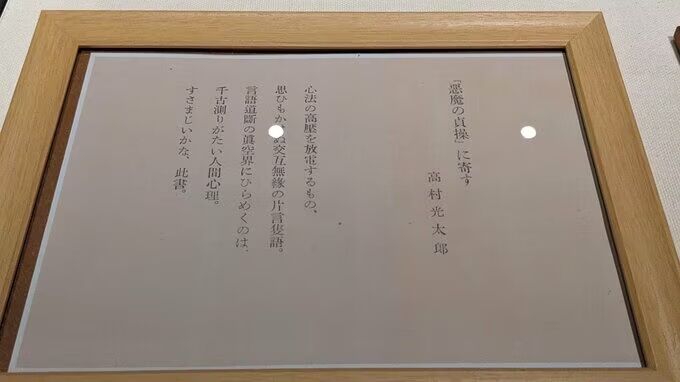 「惡魔の貞操」に寄す
高村光太郎
心法の高壓を放電するもの、
思ひもか ぬ交互無緣の片言隻語。
言語道斷の眞空界にひらめくのは、
千古測りがたい人間心理。
すさまじいかな、此書。